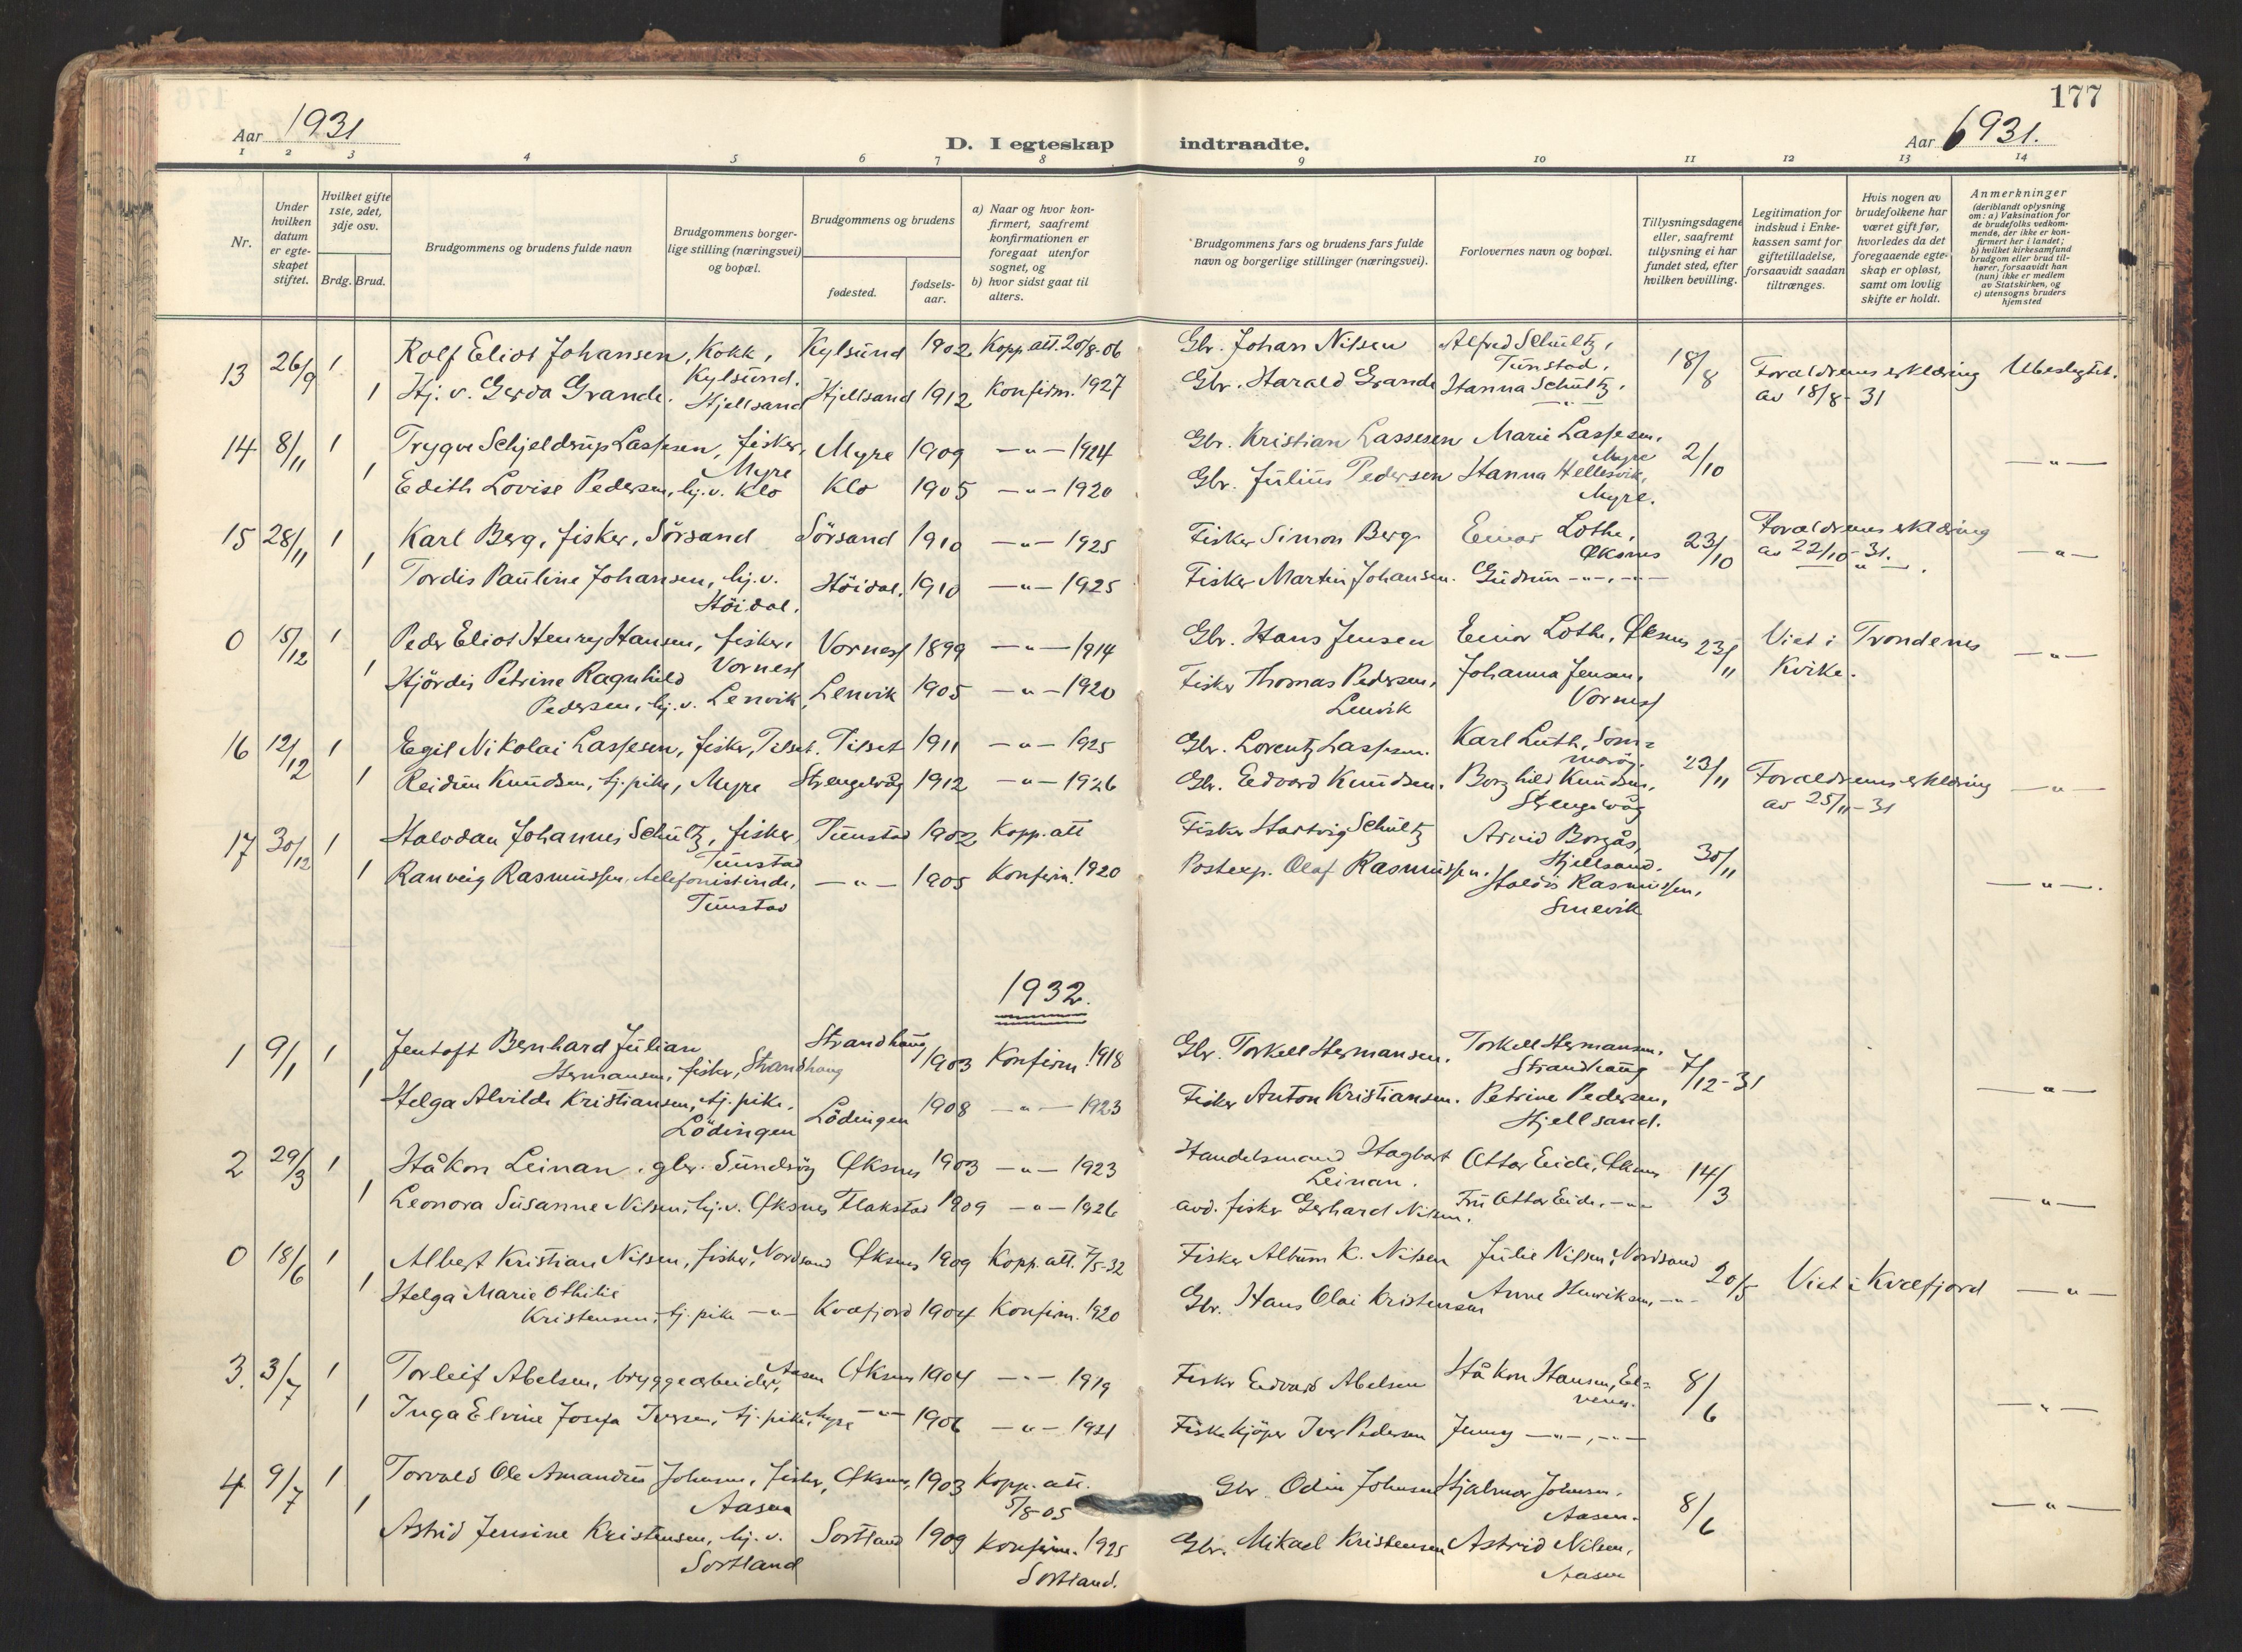 177
Aar 1931
D. I egteskap indtraadte.
Aar 6931.
1 2 3 4 5 6 7 8 9 10 11 12 13 14
Nr.
Under hvilken datum er egte-skapet stiftet.
Hvilket gifte 1ste, 2det, 3dje osv.
Brdg. Brud.
Brudgommens og brudens fulde navn
Brudgommens borger-lige stilling (næringsvei) og bopæl.
Brudgommens og brudens
fødested.
fødsels-aar.
a) Naar og hvor kon-firmert, saafremt konfirmationen er foregaat utenfor sognet, og
b) hvor sidst gaat til alters.
Brudgommens fars og brudens fars fulde navn og borgerlige stillinger (næringsvei).
Forlovernes navn og bopæl.
Tillysningsdagene eller, saafremt tillysning ei har fundet sted, efter hvilken bevilling.
Legitimation for indskud i Enke-kassen samt for giftetilladelse, forsaavidt saadan tiltrænges.
Hvis nogen av brudefolkene har været gift før, hvorledes da det foregaaende egte-skap er opløst, samt om lovlig skifte er holdt.
Anmerkninger (deriblandt oplysning om: a) Vaksination for de brudefolks vedkom-mende, der ikke er kon-firmert her i landet; b) hvilket kirkesamfund brudgom eller brud til-hører, forsaavidt han (hun) ikke er medlem av Statskirken, og c) utensogns bruders hjemsted
13 26/9 1 Rolf Eliot Johansen, Kokk, Kylsund. Kylsund 1902 Kopp. att. 20/8-06 Gbr. Johan Nilsen Alfred Schultz, Tunstad. 18/8 Forældrenes erklæring av 18/8-31 Ubeslegtet.
1 Hj. v. Gerda Grande. Hjellsand Hjellsand 1912 Konfirm. 1927 Gbr. Harald Grande Hanna Schultz, —"—
14 8/11 1 Trygve Schjeldrup Lassesen, fisker, Myre Myre 1909 —"— 1924 Gbr. Kristian Lassesen Marie Lassesen, Myre 2/10 —"—
1 Edith Lovise Pedersen, hj. v. Klo Klo 1905 —"— 1920 Gbr. Julius Pedersen Hanna Hellesvik, Myre.
15 28/11 1 Karl Berg, fisker, Sörsand Sörsand 1910 —"— 1925 Fisker Simon Berg Einar Lothe, Øksnes 23/10 Forældrenes erklæring av 22/10-31. —"—
1 Tordis Pauline Johansen, hj. v. Höidal. Höidal. 1910 —"— 1925 Fisker Martin Johansen. Gudrun —"—, —"—
0 15/12 1 Peder Eliot Henry Hansen, fisker, Vorness Vorness 1899 —"— 1914 Gbr. Hans Jensen Einar Lothe, Øksnes 23/11 Viet i Trondenes Kvike. —"—
1 Hjördis Petrine Ragnhild Pedersen, hj. v. Lenvik, Lenvik 1905 —"— 1920 Fisker Thomas Pedersen, Lenvik Johanna Jensen, Vorness
16 12/12 1 Egil Nikolai Lassesen, fisker, Tilset. Tilset 1911 —"— 1925 Gbr. Lorentz Lassesen. Karl Luth, 23/11 Forældrenes erklæring av 25/11-31 —"—
1 Reidun Knudsen, tj. pike, Myre Strengelvåg 1912 —"— 1926 Gbr. Edvard Knudsen. Borghild Knudsen, Strengelvåg
17 30/12 1 Halvdan Johannes Schultz, fisker, Tunstad Tunstad 1902 Kopp. att Fisker Hartvig Schultz Arvid Borgås, Hjellsand. 30/11 —"—.
1 Ranveig Rasmussen, telefonistinde, Tunstad —"— 1905 Konfirm. 1920 Postexp. Olaf Rasmussen. Haldis Rasmussen, Smevik
1932.
1 9/1 1 Jentoft Bernhard Julian Hermansen, fisker, Strandhaug Strandhaug 1903 Konfirm. 1918 Gbr. Torkell Hermansen. Torkell Hermansen, Strandhaug 7/12-31 —"—
1 Helga Alvilde Kristiansen, tj. pike, Lödingen Lödingen 1908 —"— 1923 Fisker Anton Kristiansen. Petrine Pedersen, Hjellsand.
2 29/3 1 Håkon Leinan, gbr. Øksnes 1903 —"— 1923 Handelsmand Hagbart Leinan. Ottar Eide, Øksnes 14/3 —"—
1 Leonora Susanne Nilsen, hj. v. Øksnes Flakstad 1909 —"— 1926 avd. fisker Gerhard Nilsen. Fru Ottar Eide, —"—
0 18/6 1 Albert Kristian Nilsen, fisker, Nordsand Øksnes 1909 Kopp. att. 7/5-32 Fisker Album K. Nilsen Julie Nilsen, Nordsand 20/5 Viet i Kvæfjord —"—
1 Helga Marie Othilie Kristensen, tj. pike —"— Kvæfjord 1904 Konfirm. 1920 Gbr. Hans Olai Kristensen Anne Henriksen —"—
3. 3/7 1 Torleif Abelsen, bryggearbeider, Aasen Øksnes 1904 —"— 1919 Fisker Edvard Abelsen Håkon Hansen, 8/6 —"—
1 Inga Elvine Josefa Iversen, tj. pike, Myre —"— 1906 —"— 1921 Fiskekjöper Iver Pedersen Jenny —"—, —"—
4 9/7 1 Torvald Ole Amandus Johnsen, fisker, Aasen Øksnes, 1903 Kopp. att. 5/8-05 Gbr. Odin Johnsen Hjalmar Johnsen, Aasen. 8/6 —"—
1 Astrid Jensine Kristensen, hj. v. Sortland Sortland 1909 Konfirm. 1925 Sortland. Gbr. Mikael Kristensen Astrid Nilsen, Aasen